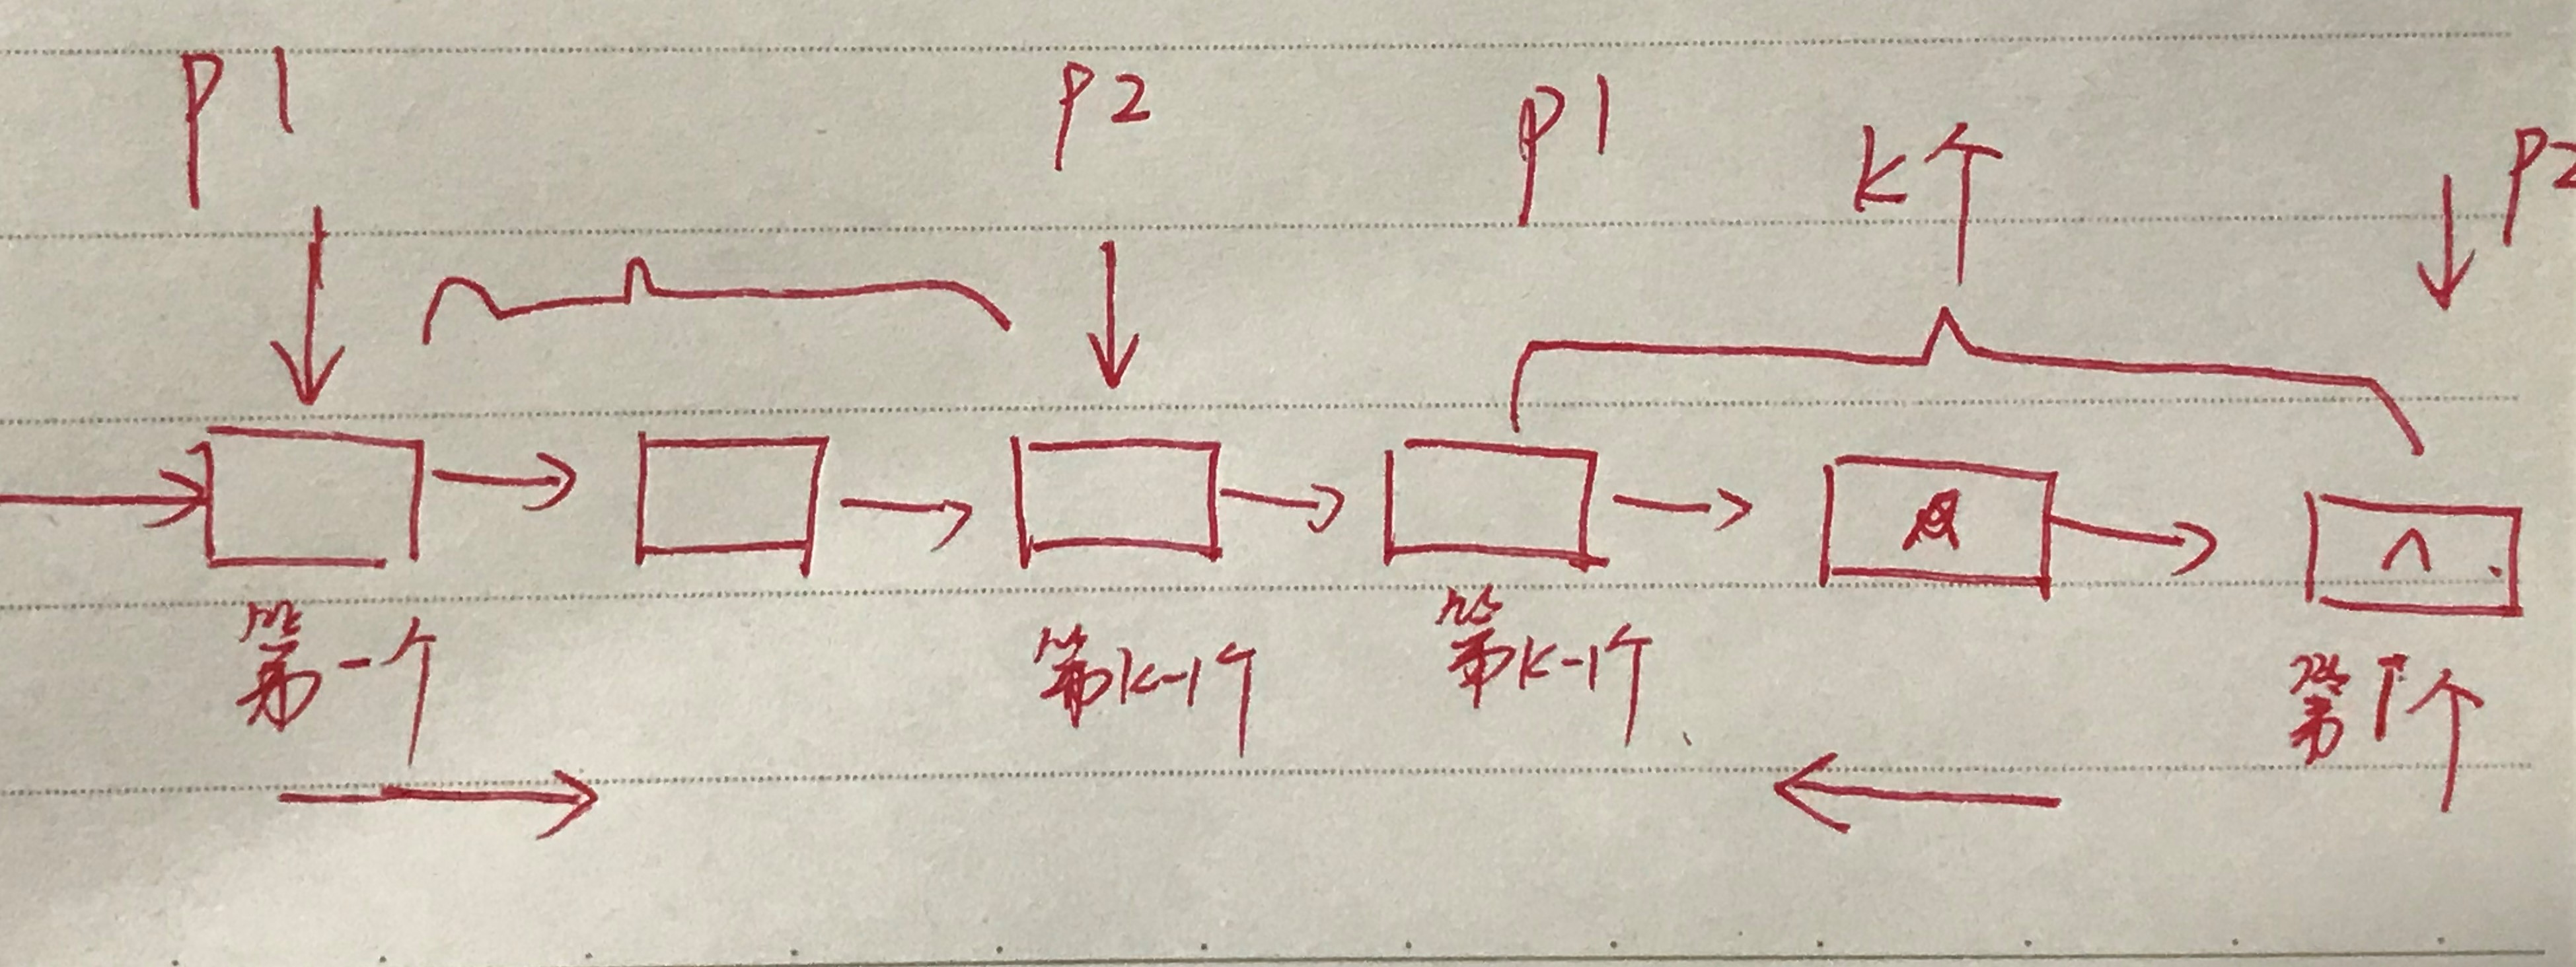 P1 P2 P1 K个 P2
∧
第一个 第K-1个 第K-1个 第1个